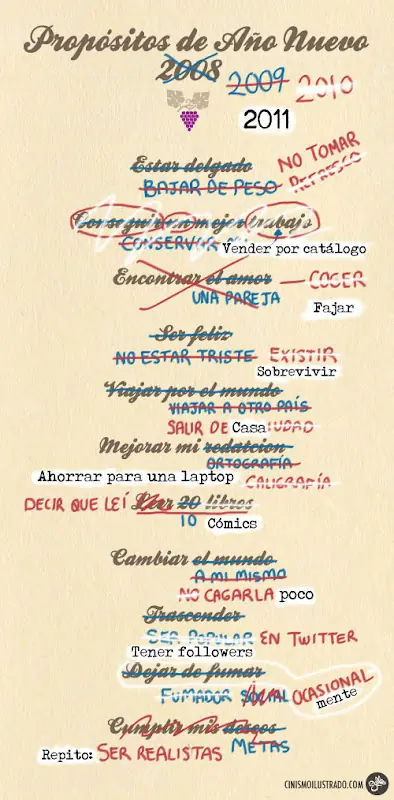 Propósitos de Año Nuevo
2008 2009 2010
2011
Estar delgado NO TOMAR
BAJAR DE PESO REFRESCO
Conseguir un mejor trabajo
CONSERVAR MI Vender por catálogo
Encontrar el amor — COGER
UNA PAREJA Fajar
Ser feliz
NO ESTAR TRISTE EXISTIR
Sobrevivir
Viajar por el mundo
VIAJAR A OTRO PAÍS
SALIR DE Casa IUDAD
Mejorar mi redatcion
ORTOGRAFÍA
Ahorrar para una laptop CALIGRAFÍA
DECIR QUE LEÍ Leer 20 libros
10 Cómics
Cambiar el mundo
A MI MISMO
NO CAGARLA poco
Trascender
SER POPULAR EN TWITTER
Tener followers
Dejar de fumar
FUMADOR SOCIAL OCASIONAL
mente
Cumplir mis deseos
METAS
Repito: SER REALISTAS
CINISMOILUSTRADO.COM